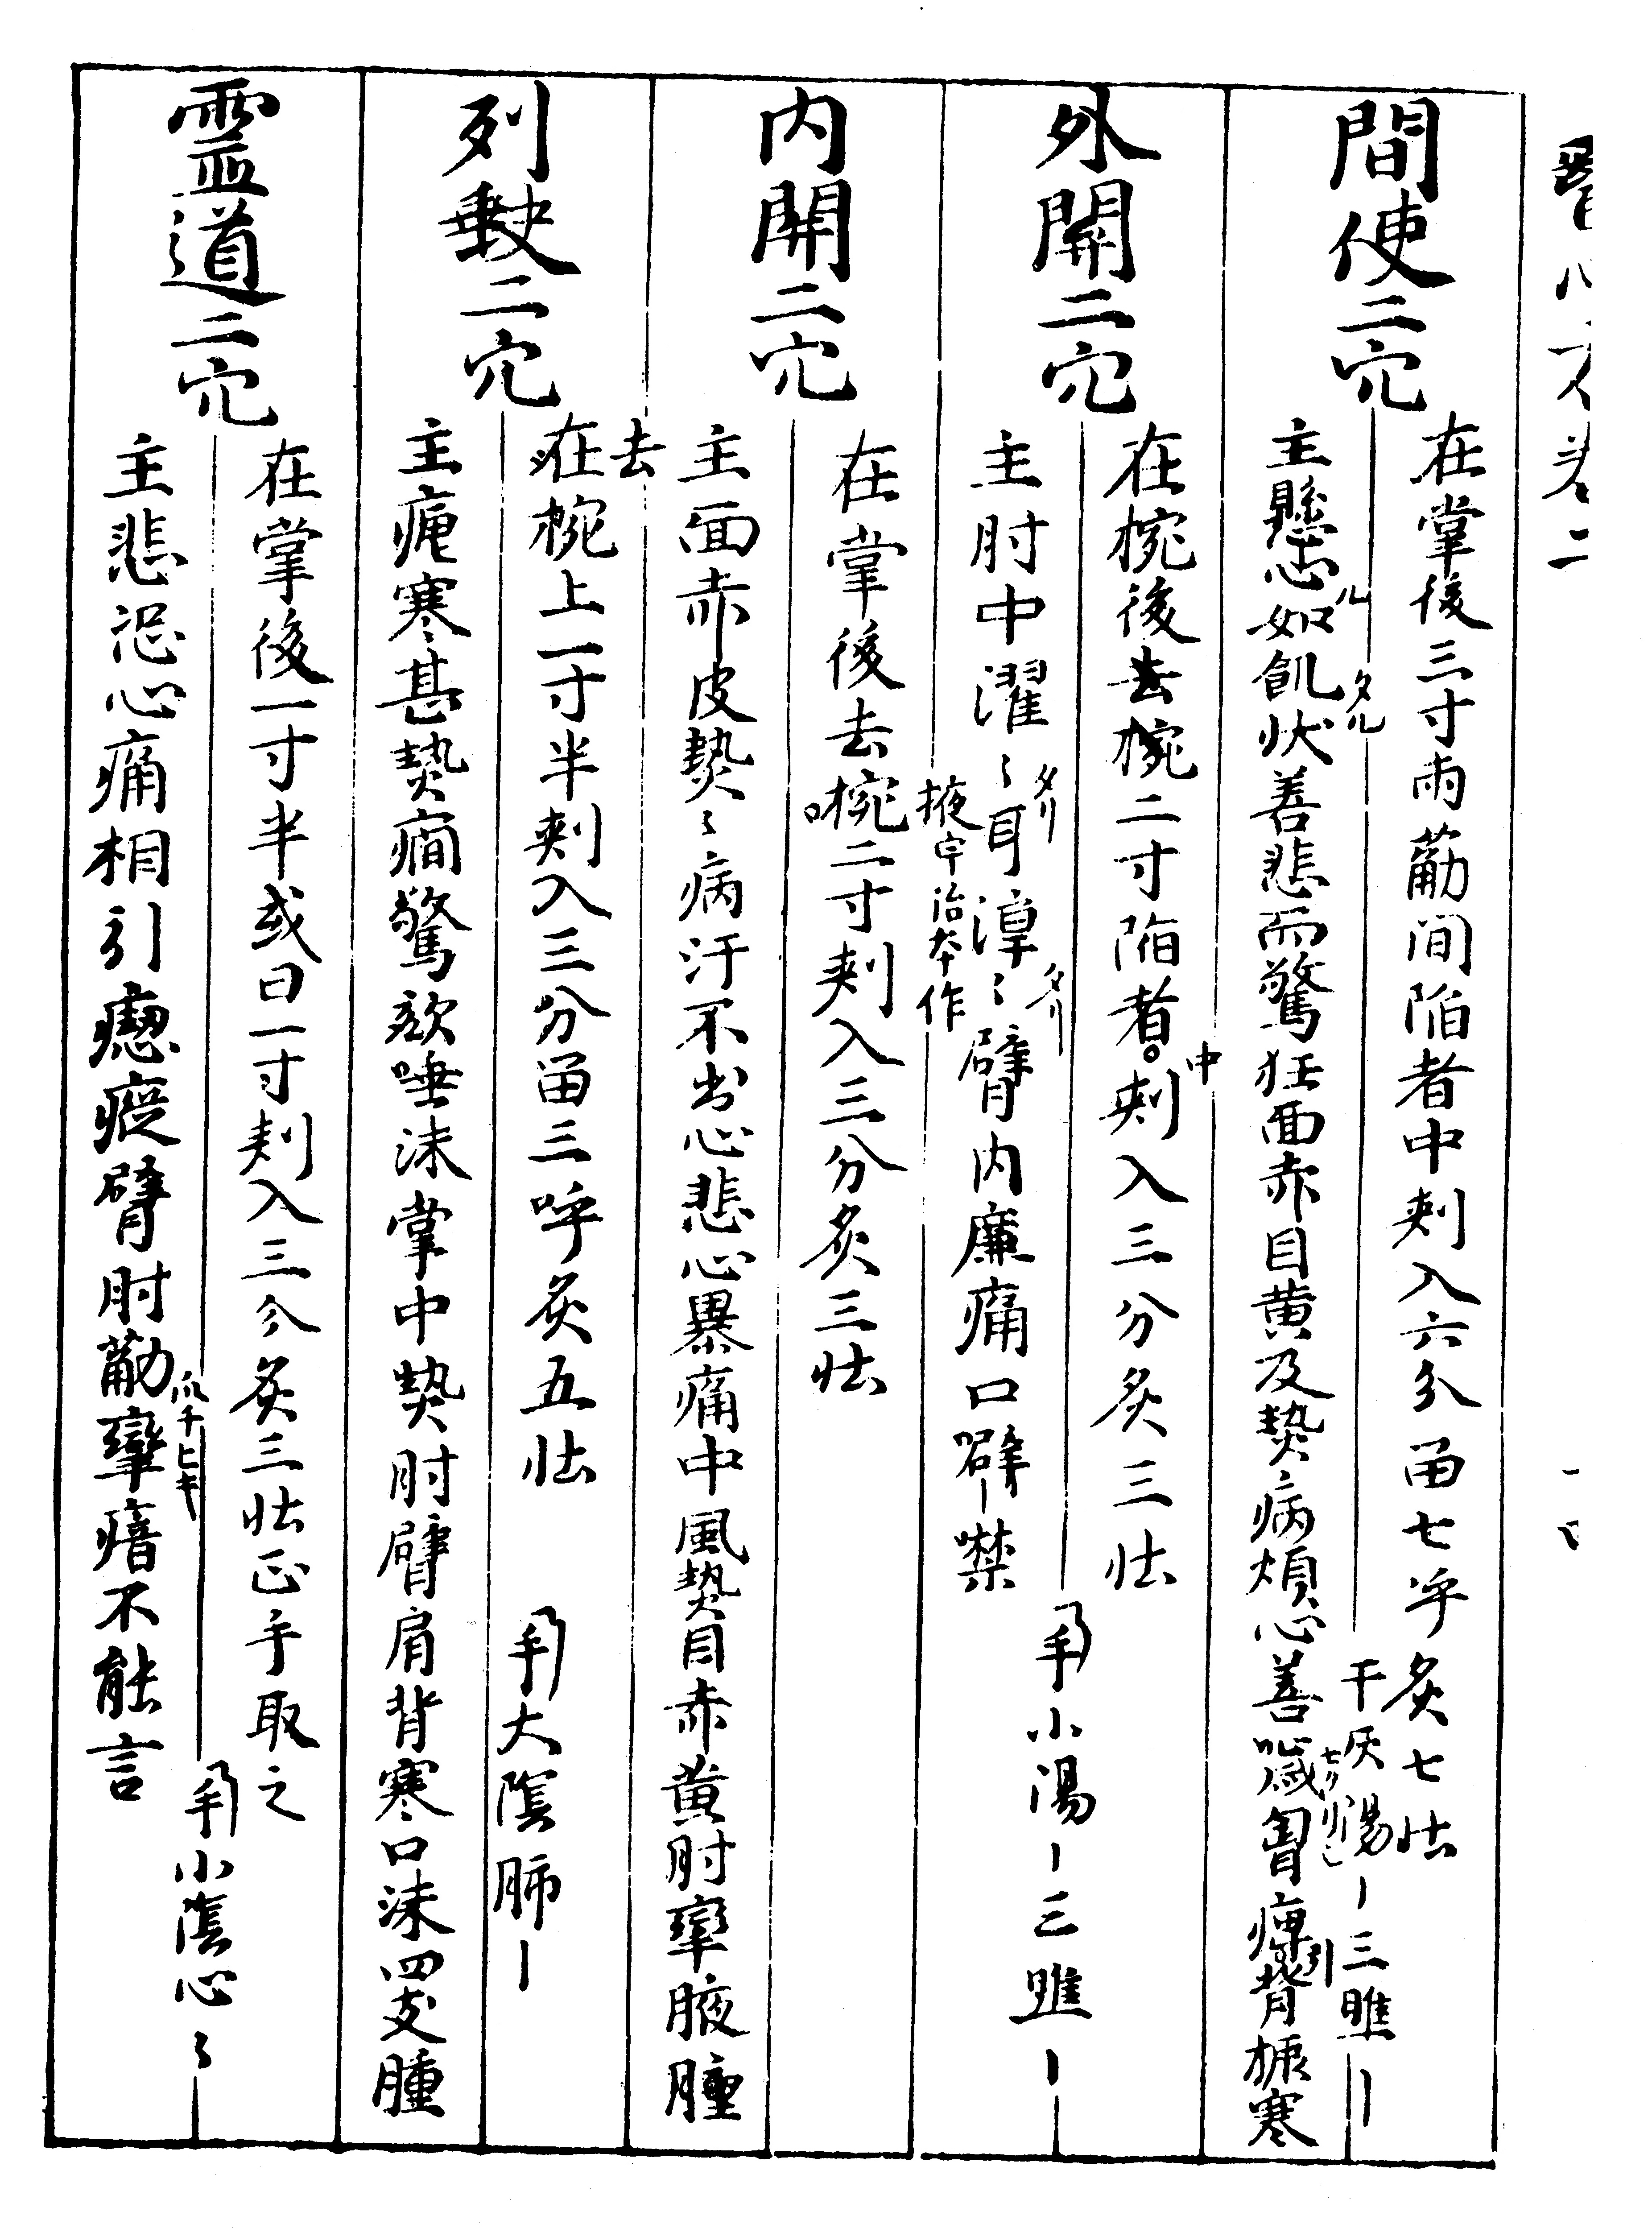 間使二穴
在掌後三寸兩筋間陷者中刾入六分留七乎灸七壮
主懸心如飢状善悲而驚狂面赤目黄及熱病煩心善噦胷痺背振寒
外関二穴
在椀後去椀二寸陷者。刾入三分灸三壮
中
主肘中濯〻耳淳〻臂内廉痛口僻噤
手小湯〡三䧹〡
内関二穴
在掌後去椀二寸刾入三分灸三壮
掖字治本作
主面赤皮熱〻病汗不出心悲心暴痛中風熱目赤黄肘攣腋腫
列缺二穴
去
在椀上一寸半刾入三分留三呼灸五壮
手大陰肺〡
主瘧寒甚熱癇驚欬唾沫掌中熱肘臂肩背寒口沫四支腫
霊道二穴
在掌後一寸半或曰一寸刾入三分灸三壮正手取之
主悲恐心痛相引瘛瘲臂肘筋攣瘖不能言
手小陰心〻